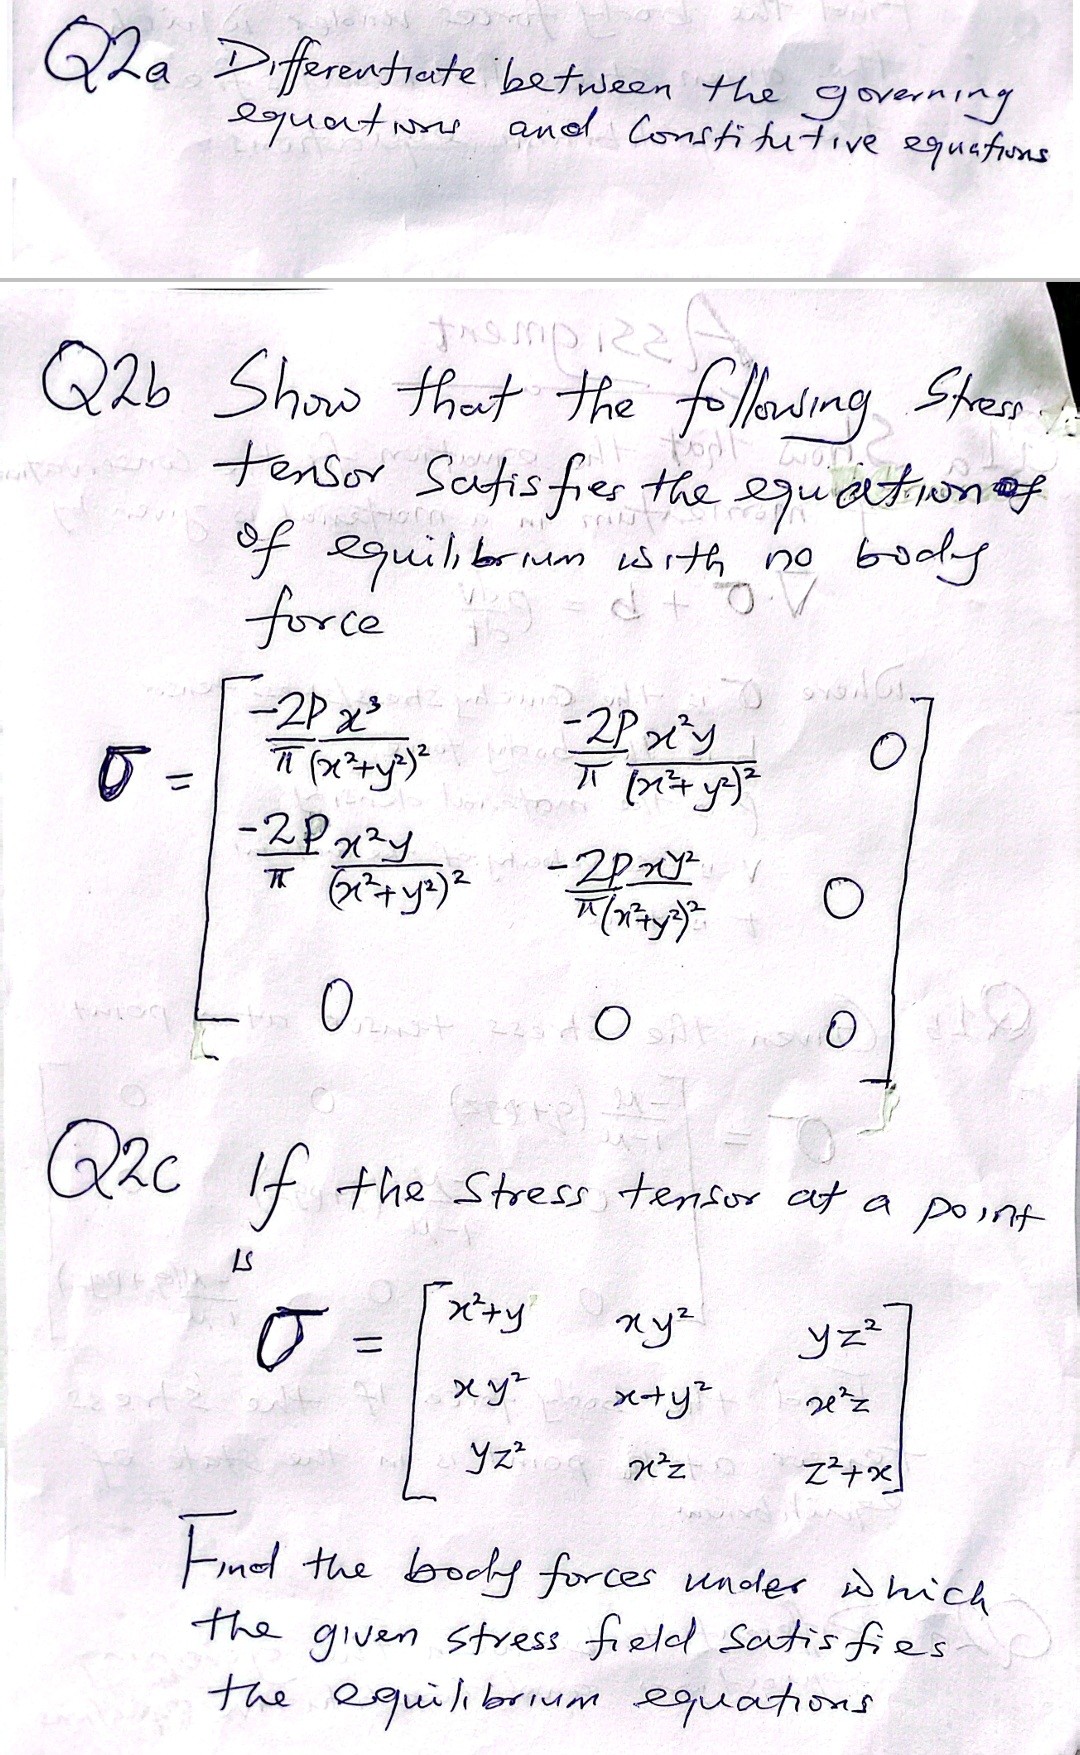 Q2a Differentiate between the governing
equations and Constitutive equations
Q2b Show that the following Stress
tensor Satisfies the equation of
of equilibrium with no body
force
σ = [ -2P/π x³/(x²+y²)²   -2P/π x²y/(x²+y²)²   0
-2P/π x²y/(x²+y²)²   -2P/π xy²/(x²+y²)²   0
0   0   0 ]
Q2c If the Stress tensor at a point
is
σ = [ x²+y   xy²   yz²
xy²   x+y²   x²z
yz²   x²z   z²+x ]
Find the body forces under which
the given stress field Satisfies
the equilibrium equations